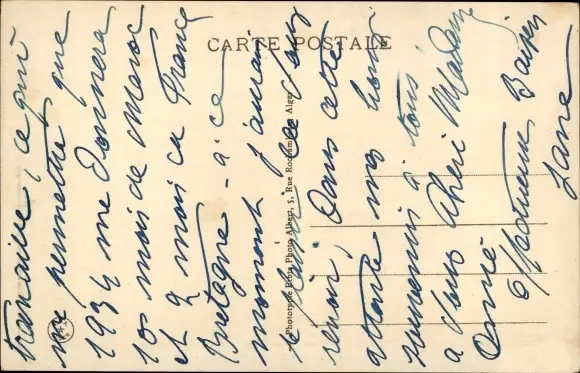 CARTE POSTALE
travaille, ce qui
me permettra que
1934 me donnera
10 mois de Maroc
et 2 mois en France
Bretagne - à ce
moment j'aurai
le plaisir de vous
revoir, Dans cette
attente mes bons
souvenirs à tous
à vous Cheri Madame
Année
Affectueux Baiser
Jane
Phototypie Photo Albert, 5, Rue Alger